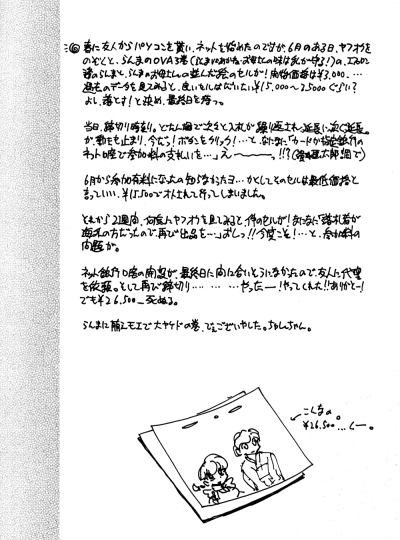 ⑥ 春に友人からパソコンを貰い、ネットを始めたのですが、6月のある日、ヤフオクを
のぞくと、らんまのOVA3巻
らんまと、らんまのお母さんの並んだ絵のセルが!開始価格は¥3,000.…
過去のデータを見てみると、良いセルはだいたい¥15,000~25,000ぐらい?
よし、落とす!と決め、最終日を待つ。
当日、締切り時刻。とたん場で次々と入札が繰り返され延長に次ぐ延長。
が、動きも止まり、今だっ!ボタンをクリック!…と、なになに「カードか指定銀行の
ネット口座で参加料の支払いを…」え~~~。!!?
6月から参加有料になったの知らなかったヨ…かくしてそのセルは最低価格と
言っていい、¥15,500でオトされて行ってしまいました。
それから2週間、何度かヤフオクを見てみると、件のセルが!
の方だったので、再び出品を…」おしっ!!今度こそ!…と、参加料の
問題が。
ネット銀行口座の開設が、最終日に間に合いそうになかったので、友人に代理
を依頼。そして再び締切り… … … …やったー!やってくれた!!ありがとー!
でも¥26,500_死ぬる。
らんまに萌えモエで大ヤケドの巻、でございやした。ちゃんちゃん。
←こんなの。
¥26,500…くー。